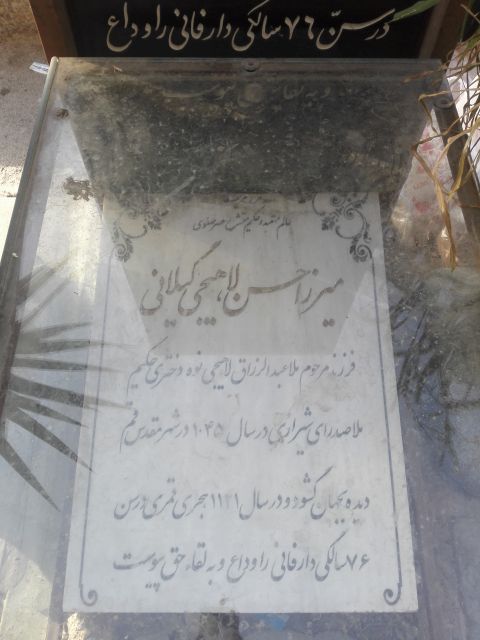 در سنّ ۷۶ سالگی دار فانی را وداع
و به لقاء حق پیوست
عالم متعبد و حکیم متشرع عصر صفوی
میرزا حسن لاهیجی گیلانی
فرزند مرحوم ملا عبدالرزاق لاهیجی نوه دختری حکیم
ملاصدرای شیرازی در سال ۱۰۴۵ در شهر مقدس قم
دیده بجهان گشود و در سال ۱۱۲۱ هجری قمری در سن
۷۶ سالگی دار فانی را وداع و به لقاء حق پیوست